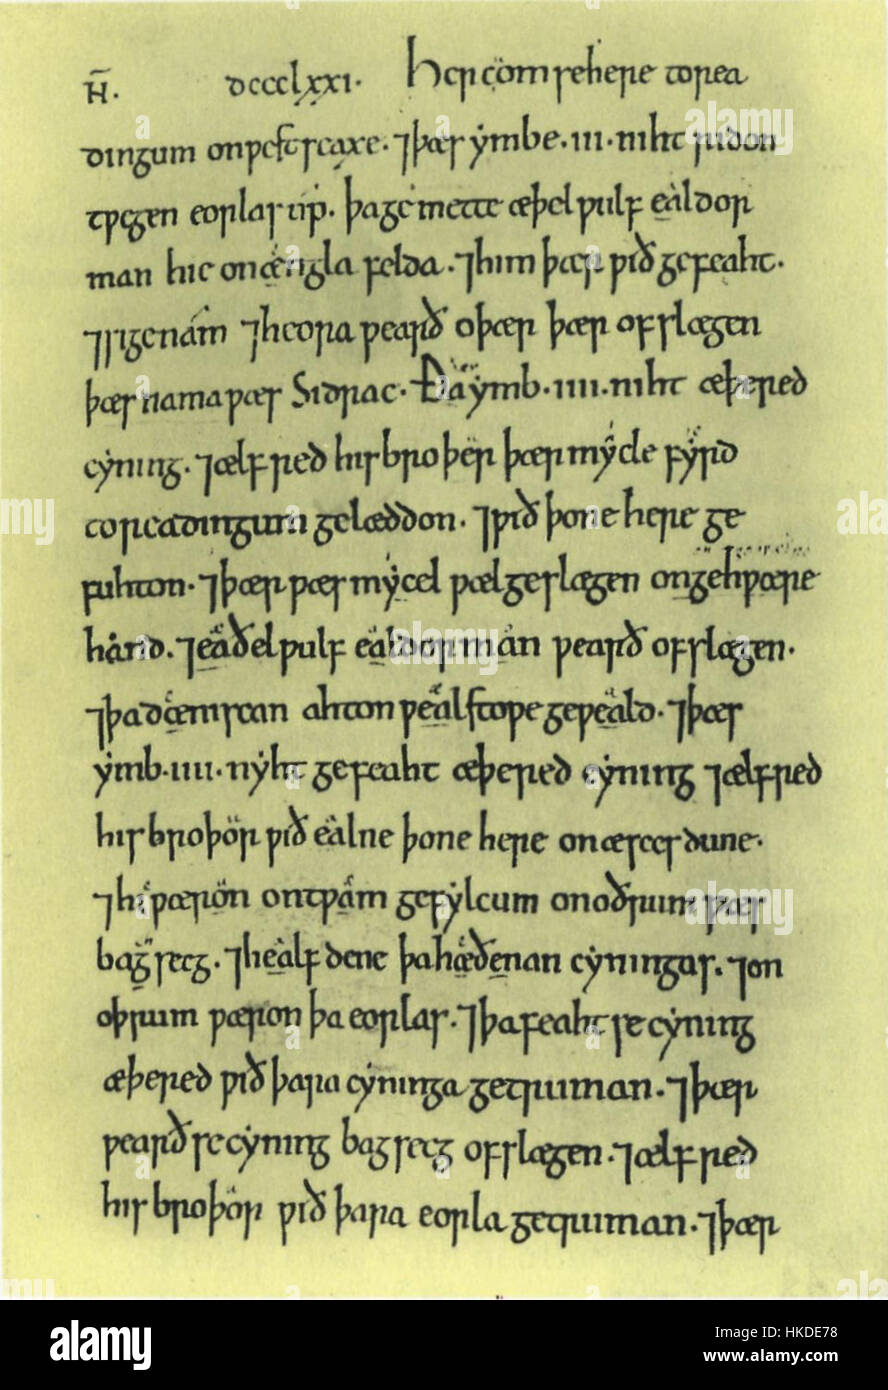 Ħ. dccclxxi. Her com se here to rea
dingum on ƿestseaxe. ⁊ þæs ymbe .iii. niht ridon
tƿegen eorlas up. þa gemette æþelƿulf ealdor
man hie on ængla felda. ⁊ him þær ƿið gefeaht.
⁊ sige nam ⁊ heora ƿearð oþær þær ofslægen
þæs nama ƿæs Sidrac. Ða ymb .iiii. niht æþered
cyning. ⁊ ælfred his broþer þær mycle fyrd
to readingum gelæddon. ⁊ ƿið þone here ge
fuhton. ⁊ þær ƿæs mycel ƿælgeslægen on gehƿæþre
hand. ⁊ eaðelƿulf ealdorman ƿearð ofslægen.
⁊ þa dæniscan ahton ƿealstoƿe geƿeald. ⁊ þæs
ymb .iiii. nyht gefeaht æþered cyning ⁊ ælfred
his broþor ƿið ealne þone here on æscesdune.
⁊ hi ƿæron on tƿam gefylcum on oðrum ƿæs
bagsecg. ⁊ healfdene þa hæðenan cyningas. ⁊ on
oþrum ƿæron þa eorlas. ⁊ þa feaht se cyning
æþered ƿið þara cyninga getruman. ⁊ þær
ƿearð se cyning bagsecg ofslægen. ⁊ ælfred
his broþor ƿið þara eorla getruman. ⁊ þær
alamy
Image ID: HKDE78
www.alamy.com